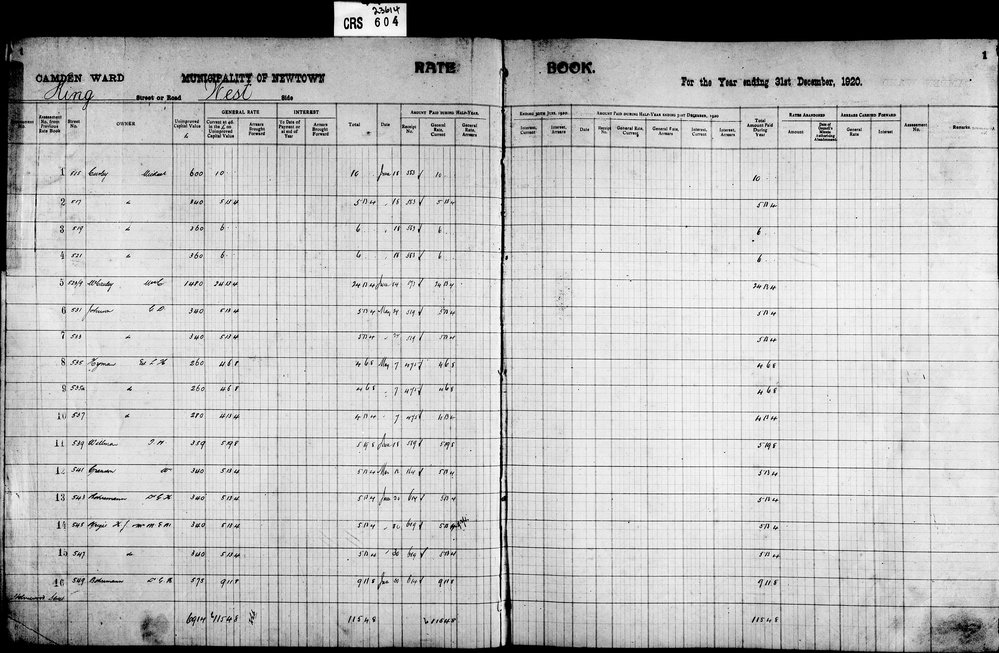 23614
CRS 604
1
1
CAMDEN WARD MUNICIPALITY OF NEWTOWN RATE BOOK. For the Year ending 31st December, 1920.
King Street or Road West Side
Assessment No. from Previous Rate Book Street No. OWNER Unimproved Capital Value £ GENERAL RATE Current at 4d. in the £ on Unimproved Capital Value Arrears Brought Forward INTEREST To Date of Payment or at end of Year Arrears Brought Forward Total Date AMOUNT PAID DURING HALF-YEAR Receipt No. General Rate, Current General Rate, Arrears
ENDING 30TH JUNE, 1920. Interest, Current Interest, Arrears AMOUNT PAID DURING HALF-YEAR ENDING 31ST DECEMBER, 1920 Date Receipt No. General Rate, Current General Rate, Arrears Interest, Current Interest, Arrears Total Amount Paid During Year RATES ABANDONED Amount Date of Council's Minute Authorising Abandonment ARREARS CARRIED FORWARD General Rate Interest Assessment No. Remarks
1 515 Curley Michael 600 10 10 June 18 553 10 10
2 517 " 340 5 13 4 5 13 4 " 18 553 5 13 4 5 13 4
3 519 " 360 6 6 " 18 553 6 6
4 521 " 360 6 6 " 18 553 6 6
5 1480 24 13 4 24 13 4 24 13 4 24 13 4
6 531 Johnson C D 340 5 13 4 5 13 4 May 519 5 13 4 5 13 4
7 533 " 340 5 13 4 5 13 4 519 5 13 4 5 13 4
8 535 Hyman 260 4 6 8 4 6 8 May 7 475 4 6 8 4 6 8
9 535a " 260 4 6 8 4 6 8 " 7 475 4 6 8 4 6 8
10 537 " 280 4 13 4 4 13 4 " 7 475 4 13 4 4 13 4
11 539 Wellman J H 359 5 19 8 5 19 8 June 18 559 5 19 8 5 19 8
12 541 W 340 5 13 4 5 13 4 5 13 4 5 13 4
13 543 340 5 13 4 5 13 4 June 30 619 5 13 4 5 13 4
14 545 340 5 13 4 5 13 4 " 30 619 5 13 4 5 13 4
15 547 " 340 5 13 4 5 13 4 " 30 619 5 13 4 5 13 4
16 549 575 9 11 8 9 11 8 June 30 9 11 8 9 11 8
6914 115 4 8 115 4 8 115 4 8 115 4 8